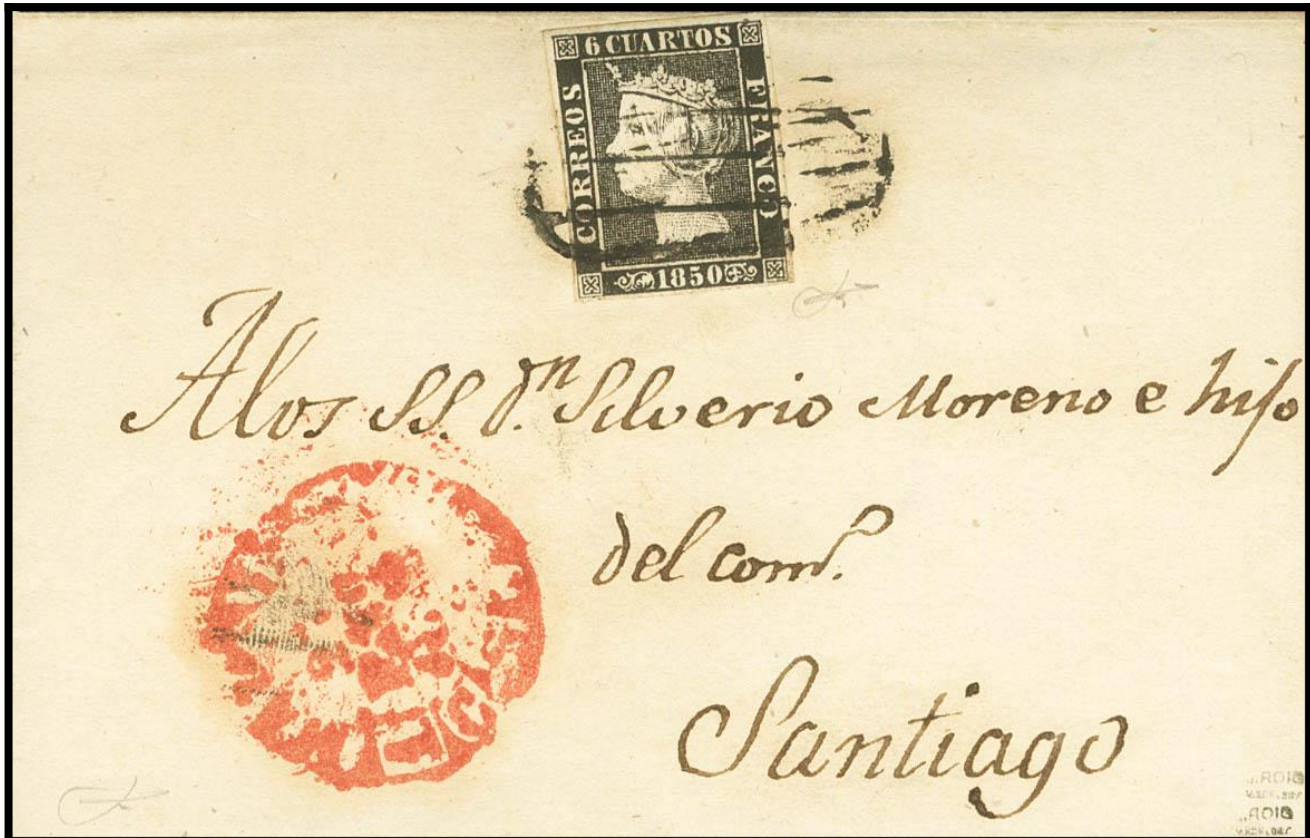 6 CUARTOS
CORREOS
FRANCO
1850
Alos SS. Dn. Silverio Moreno e hijo
del comº.
Santiago
ROIG
ROIG